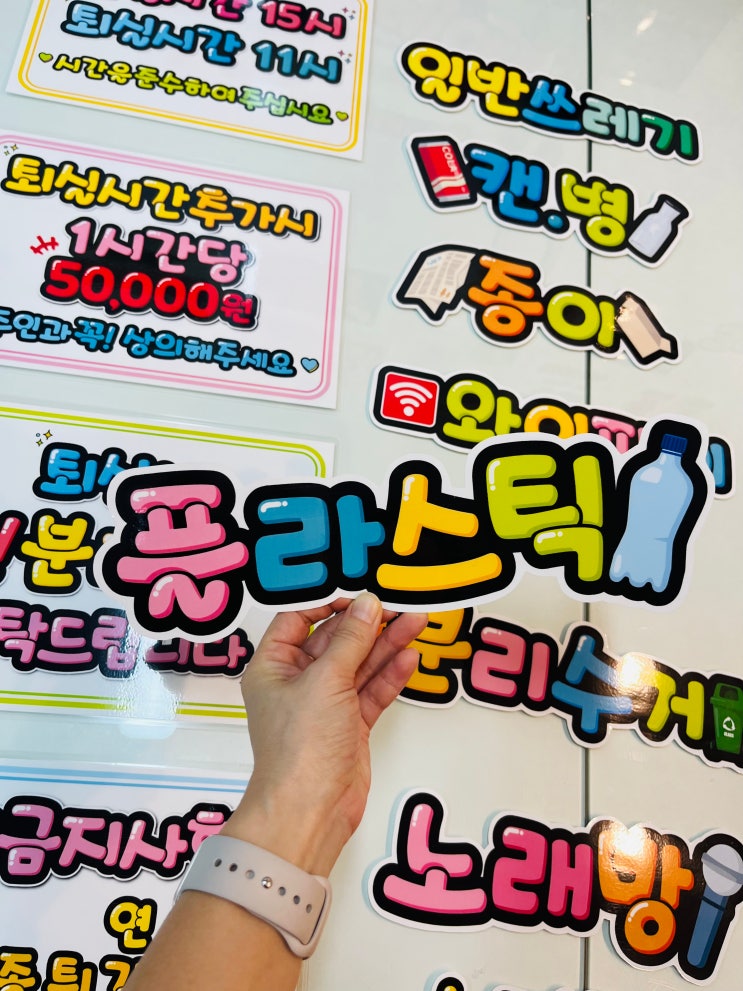 퇴실시간 11시
시간을준수하여주십시요
퇴실시간추가시
1시간당
50,000원
꼭! 상의해주세요
탁드립니다
금지사항
일반쓰레기
캔.병
종이
와이파이
플라스틱
분리수거
노래방